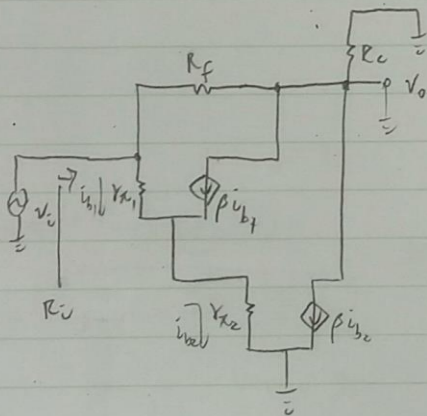 R_f
R_c
V_o
V_i
i_{b1}
r_{π1}
βi_{b1}
R_i
i_{b2}
r_{π2}
βi_{b2}